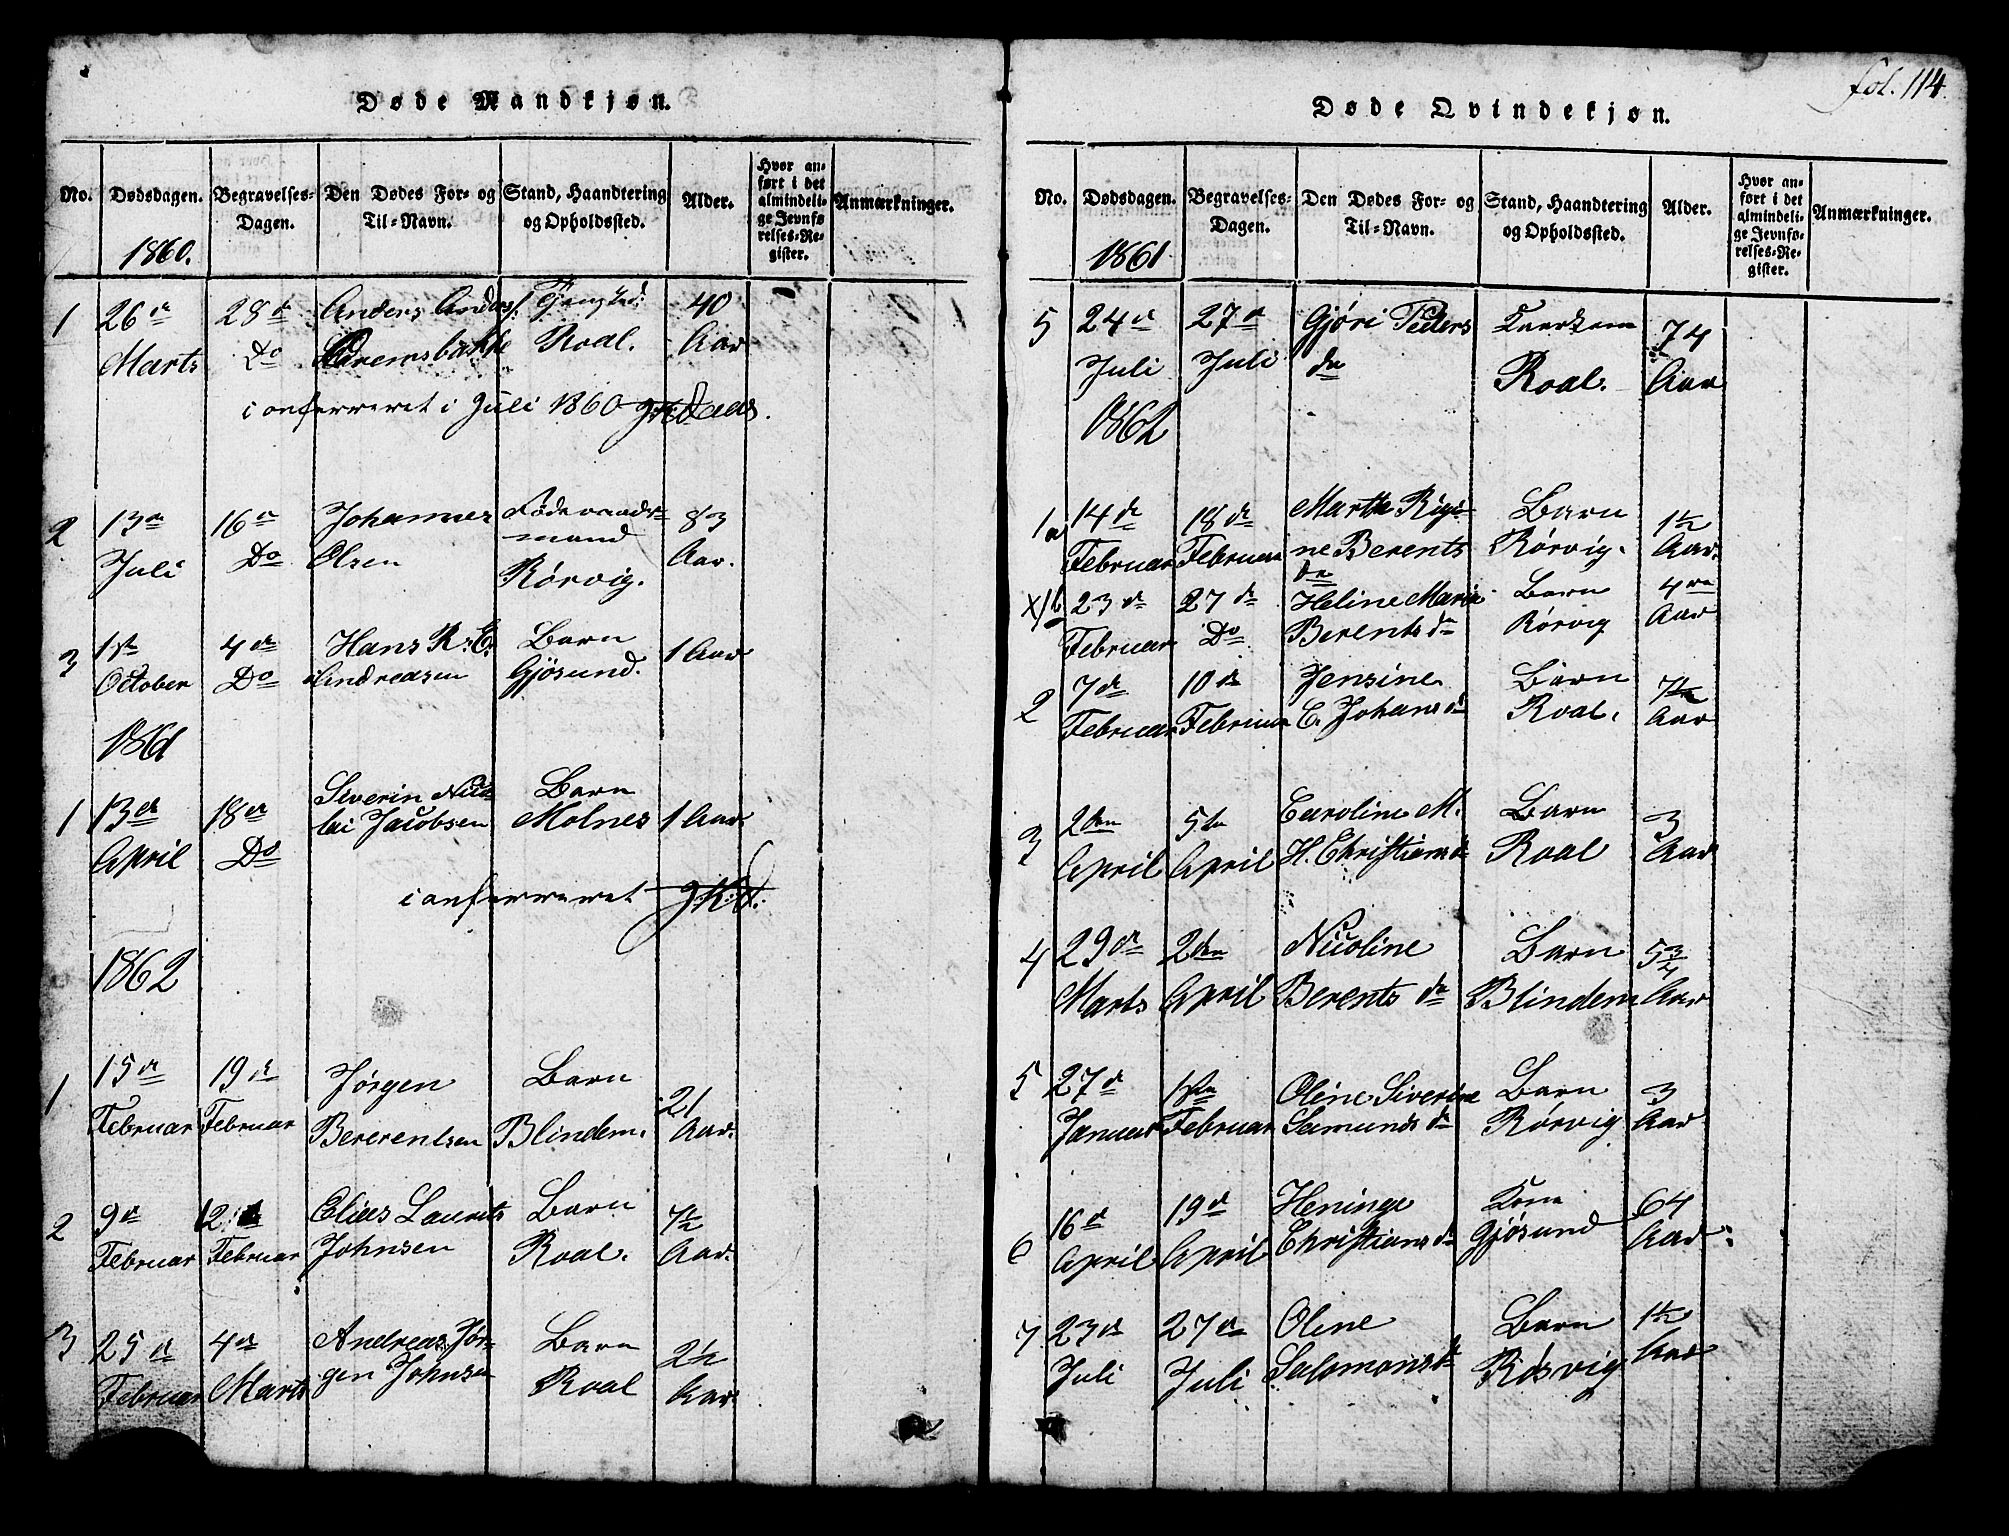 fol. 114.
Døde Mandkjøn.
No.
Dødsdagen.
Begravelses-
Dagen.
Den Dødes For- og
Til-Navn.
Stand, Haandtering
og Opholdssted.
Alder.
Hvor an-
ført i det
almindeli-
ge Jevnfø
relses-Re-
gister.
Anmærkninger.
1860.
1 26de 28de Anders Anders. 40
Marts Do Roal. Aar
Confereret i Juli 1860
2 13de 16de Johannes Føderaads- 83
Juli Do Olsen mand Aar.
Rørvig.
3 1ste 4de Hans R. C. Barn 1 Aar
October Do Andreasen Gjøsund.
1861
1 13de 18de Siverin Nico- Barn 1 Aar
April Do lai Jacobsen Molnes
Confereret
1862
1 15de 19de Jørgen Barn 21
Februar Februar Bererentsen Blindem. Aar.
2 9de 12te Elias Laurits Barn 7½
Februar Februar Johnsen Roal. Aar.
3 25de 4de Andreas Jør- Barn 2½
Februar Marts gen Johnsen Roal Aar.
Døde Qvindekjøn.
No.
Dødsdagen.
Begravelses-
Dagen.
Den Dødes For- og
Til-Navn.
Stand, Haandtering
og Opholdssted.
Alder.
Hvor an-
ført i det
almindeli-
ge Jevnfø-
relses-Re-
gister.
Anmærkninger.
1861
5 24de 27de Gjøri Peders 74
Juli Juli da Roal. Aar
1862
1a 14de 18de Marthe Regi- Barn 1½
Februar Februar ne Berents Rørvig. Aar.
da
1b 23de 27de Heline Marie Barn 4re
Februar Do Berentsda Rørvig Aar
2 7de 10de Jensine Barn
Februar Februar C. Johansda Roal. Aar
3 2den 5te Caroline M. Barn 3
April April H. Christiansda Roal Aar
4 29de 2den Nicoline Barn 5¾
Marts April Berents da Blindem Aar
5 27de 1ste Oline Siverine Barn 3
Januar Februar Samunds da Rørvig Aar
6 16de 19de Heninge Kone 64
April April Christiansda Gjøsund Aar.
7 23de 27de Oline Barn 1½
Juli Juli Salomonsda Rørvig Aar